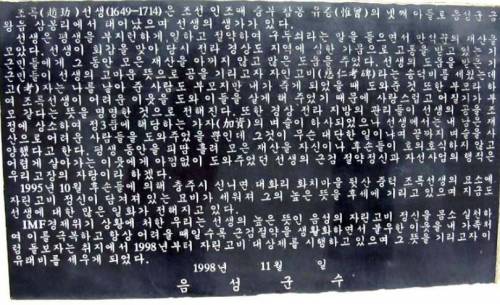 조륵(趙玏)선생(1649~1714)은 조선 인조때 참봉 넷째 아들로 음성군 금
왕읍 삼봉리에서 태어났으며 선생의 생가가 있다.
선생은 평생을 부지런하게 일하고 절약하여 구두쇠라는 말을 들으면서
모았다. 선생이 회갑을 맞아 당시 전라 경상도 지역에 심한 가뭄으로 고통을 받고 있는
군민들에게 그 동안 모은 재산을 아끼지 않고 많은 도움을 주었다. 선생의 도움을
군민들이 선생의 고마운 뜻으로 공을 기리고자 자인고비(慈仁考碑)라는 송덕비를 세웠는데
고(考)자는 나를 낳아 준 사람만 부모지만 내가 죽게 되었을 때 도와준 것도 또한 부모라 하
여 조륵선생이 어려운 이웃을 도와 이들을 살게 해 주었기 때문에 사람으로
모 같다는 뜻을 명명한 것으로 전해진다. 또한 경상 전라 지방의 관리들이 선생의
정에 상소하여 정3품에 해당하는 가자(加資)의 벼슬이 하사되었으나 선생께서는 내가
로 어려운 사람들을 도와 주었을 뿐인데 그것이 무슨 대단한 일이냐며 끝까지 벼슬을
양했다고 한다. 평생 동안을 피땀 흘려 모은 재산을 자신이나 후손들이 호의호식하지 않고
어렵게 살아가는 이웃에게 아낌없이 도와주었던 선생의 근검 절약정신과 자선사업의 행적은
우리고장의 자랑이라 하겠다.
1995년 10월 후손들에 의해 충주시 신니면 대화리 화치마을 뒷산 중턱 조륵선생의 묘소에
자린고비 정신이 담겨져 있는 묘비가 세워져 그의 높은 뜻을 후세에 기리고 있으며 지금도
선생에 대한 많은 일화가 전해지고 있다.
IMF경제위기 상황에 처한 우리는 선생의 높은 뜻인 음성의 자린고비 정신을 몸소 실천하
여 이를 극복하고 앞으로 어려울 때일수록 근검절약을 생활화하면서 불우한 이웃을 내 가족처
럼 돌보자는 취지에서 1998년부터 자린고비 대상제를 시행하고 있으며 그 뜻을 기리고자 이
유래비를 세우게 되었다.
1998년 11월 일
음성군수